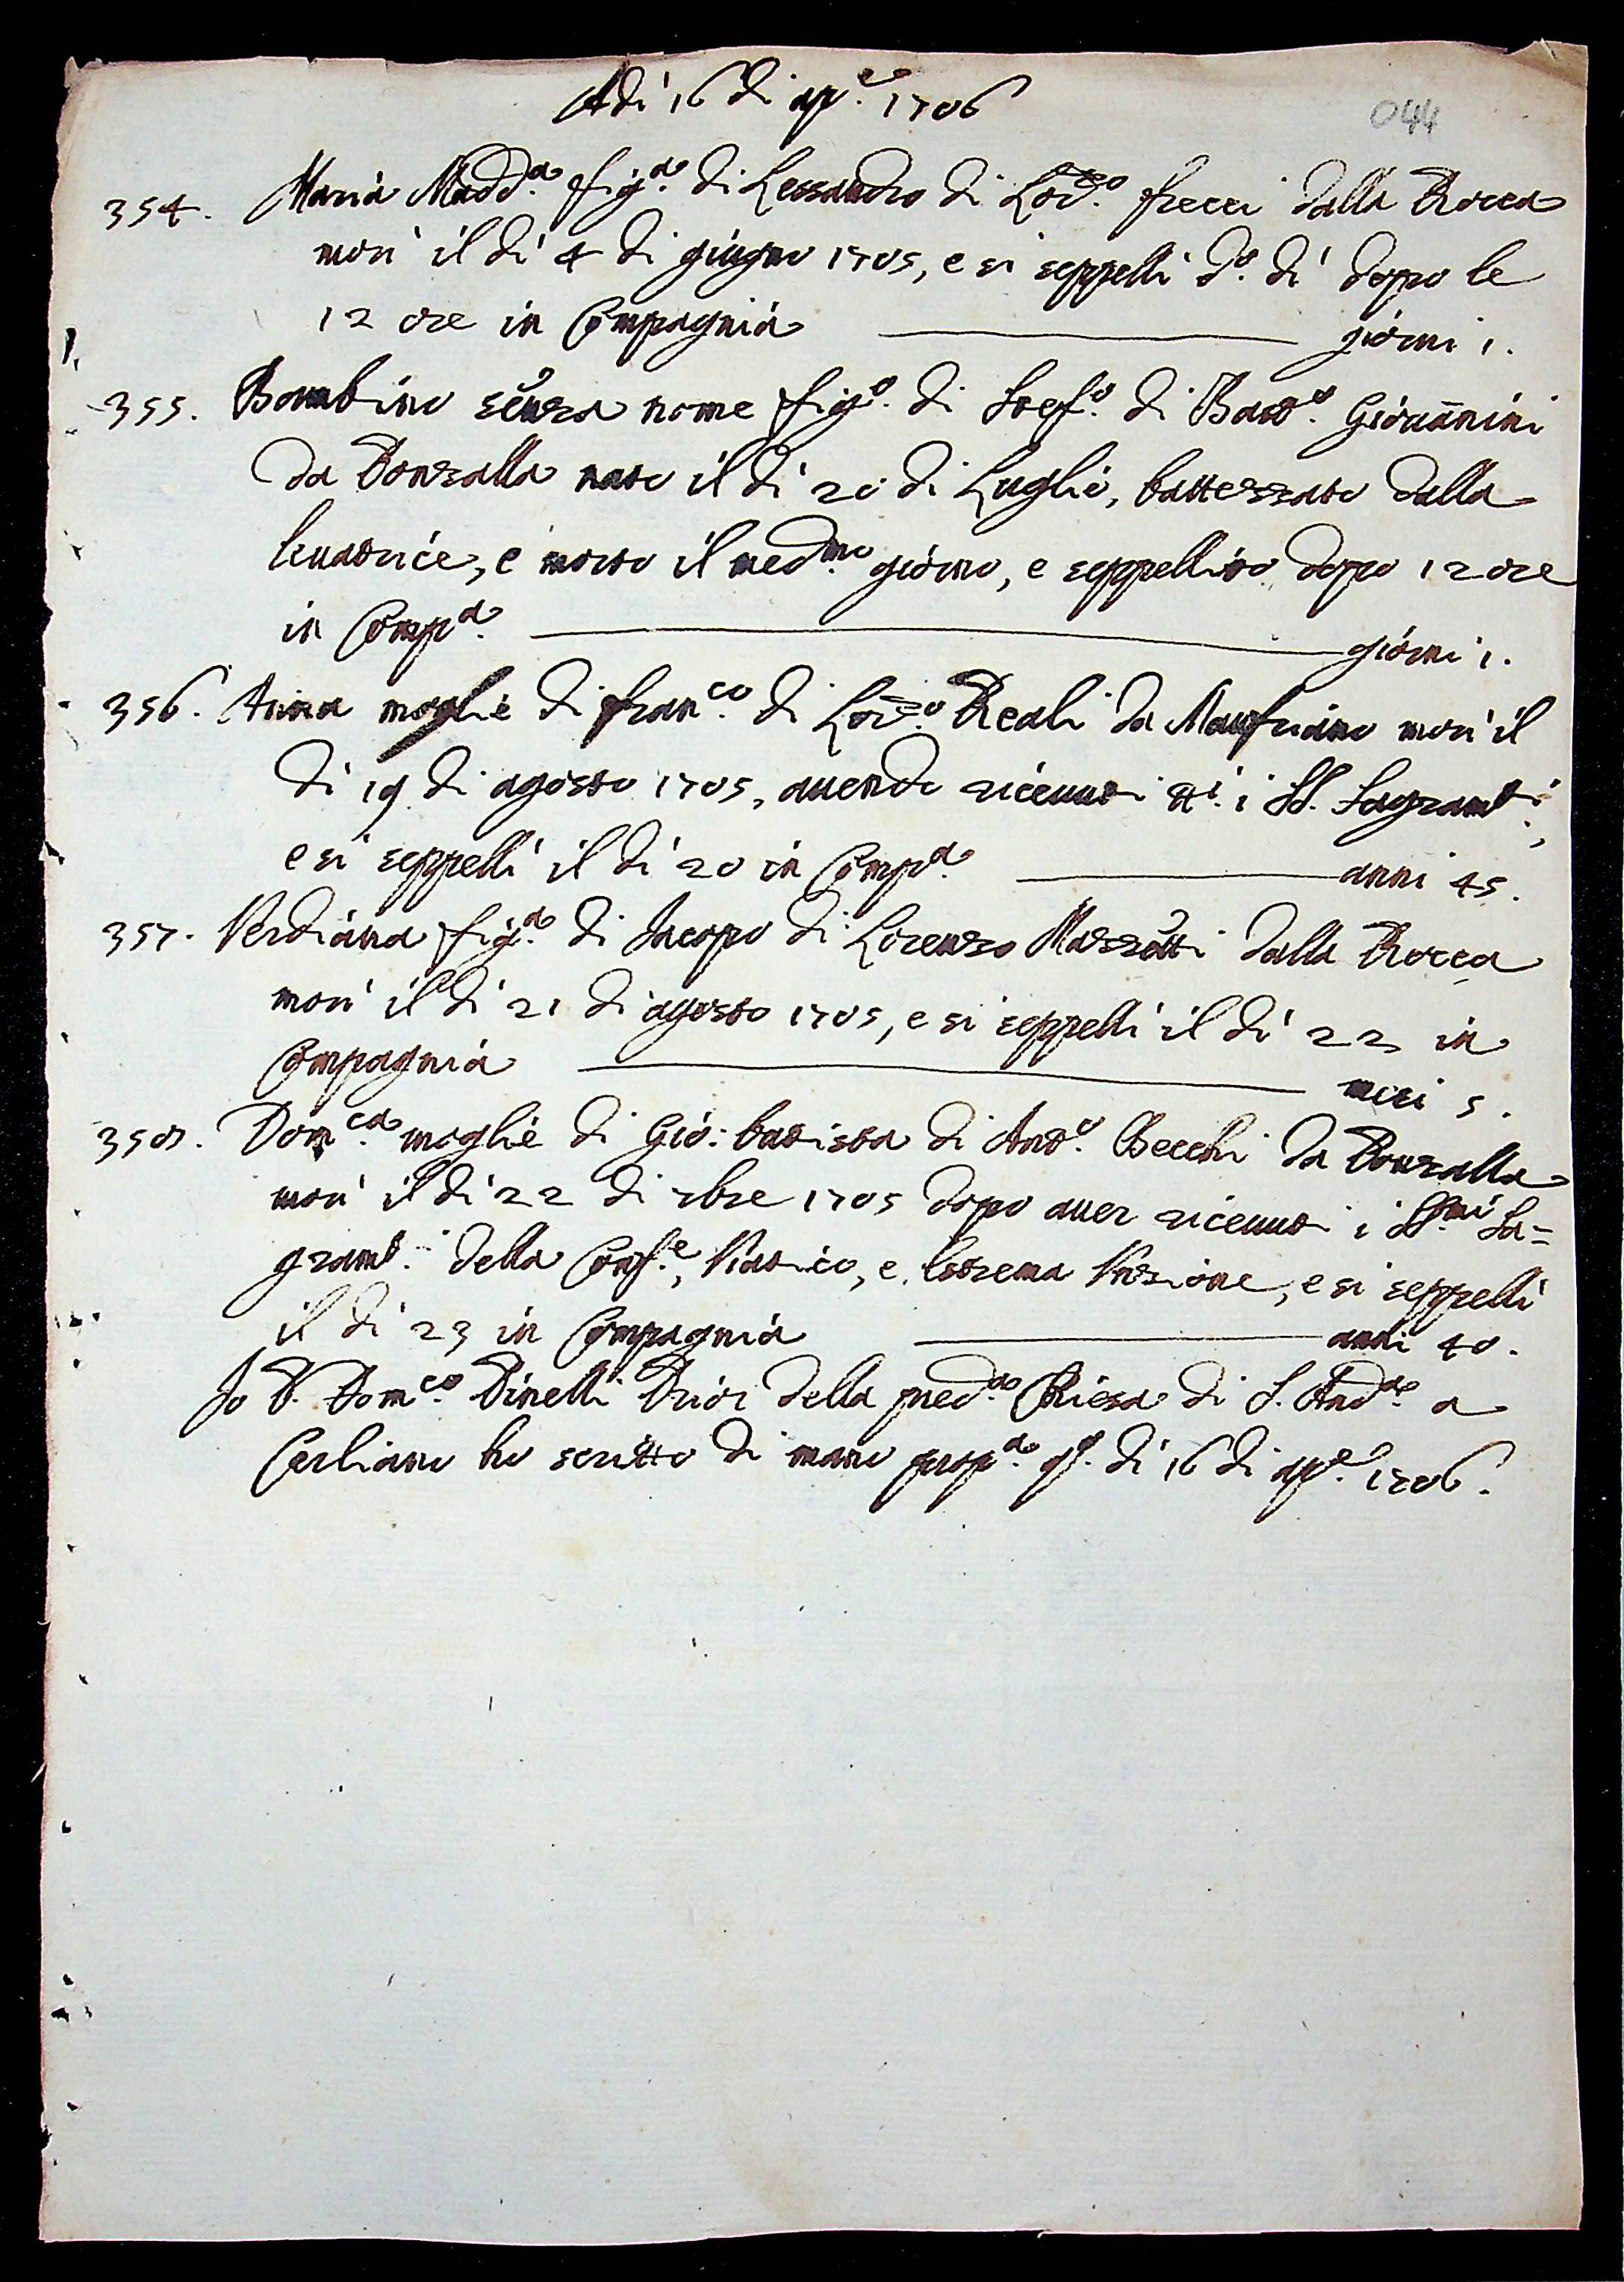 Adi 16 di ap.e 1706
044
354. Maria Madd.a fig.a di Lessandro di Lor.zo frecci dalla Rocca
morì il dì 4 di giugno 1705, e si seppellì d.o dì dopo le
12 ore in Compagnia giorni 1.
355. Bambino senza nome fig.o di Stef.o di Batt.o Giovannini
da Ponzalla nato il dì 20 di Luglio, battezzato dalla
levatrice, e morto il med.mo giorno, e seppellito dopo 12 ore
in Comp.a giorni 1.
356. Anna moglie di fran.co di Lor.zo Reali da Manfriano morì il
dì 19 di agosto 1705, avendo ricevuti tt.i i SS. Sagramt.i,
e si seppellì il dì 20 in Comp.a anni 45.
357. Verdiana fig.a di Jacopo di Lorenzo Mazzetti dalla Rocca
morì il dì 21 di agosto 1705, e si seppellì il dì 22 in
Compagnia mesi 5.
358. Dom.ca moglie di Gio: batista di Ant.o Becchi da Ponzalla
morì il dì 22 di 7bre 1705 dopo aver ricevuti i SS.mi Sa=
gramt.i della Conf.e, Viatico, e Estrema Unzione, e si seppellì
il dì 23 in Compagnia anni 40.
Io P. Dom.co Pinelli Prior della pred.a Chiesa di S. And.a a
Cerliano ho scritto di mano prop.a q.o dì 16 di ap.e 1706.